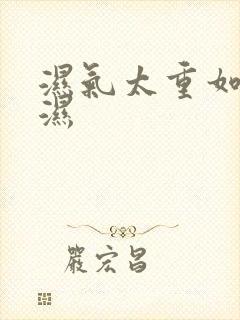 濕氣太重如
濕
嚴宏昌